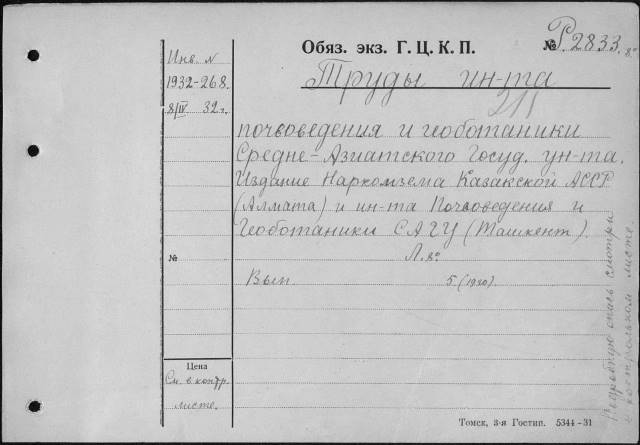 Обяз. экз. Г. Ц. К. П.
№ Р.2833. 8°
Инв. N
1932-268.
8/IV 32 г.
Труды ин-та
почвоведения и геоботаники
Средне-Азиатского Госуд. ун-та.
Издание Наркомзема Казакской АССР
(Алмата) и ин-та Почвоведения и
Геоботаники САГУ (Ташкент).
Л. 8°
№
Вып. 5. (1930).
Цена
См. в контр.
листе.
Подробную опись смотри
в контрольном листе.
Томск, 3-я Гостип. 5344-31